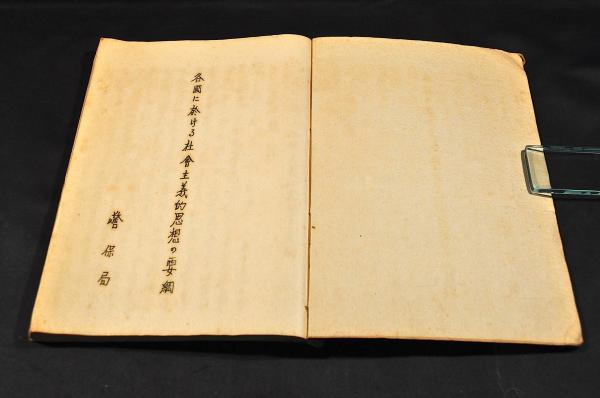 各國に於ける社會主義的思想の要綱
警保局